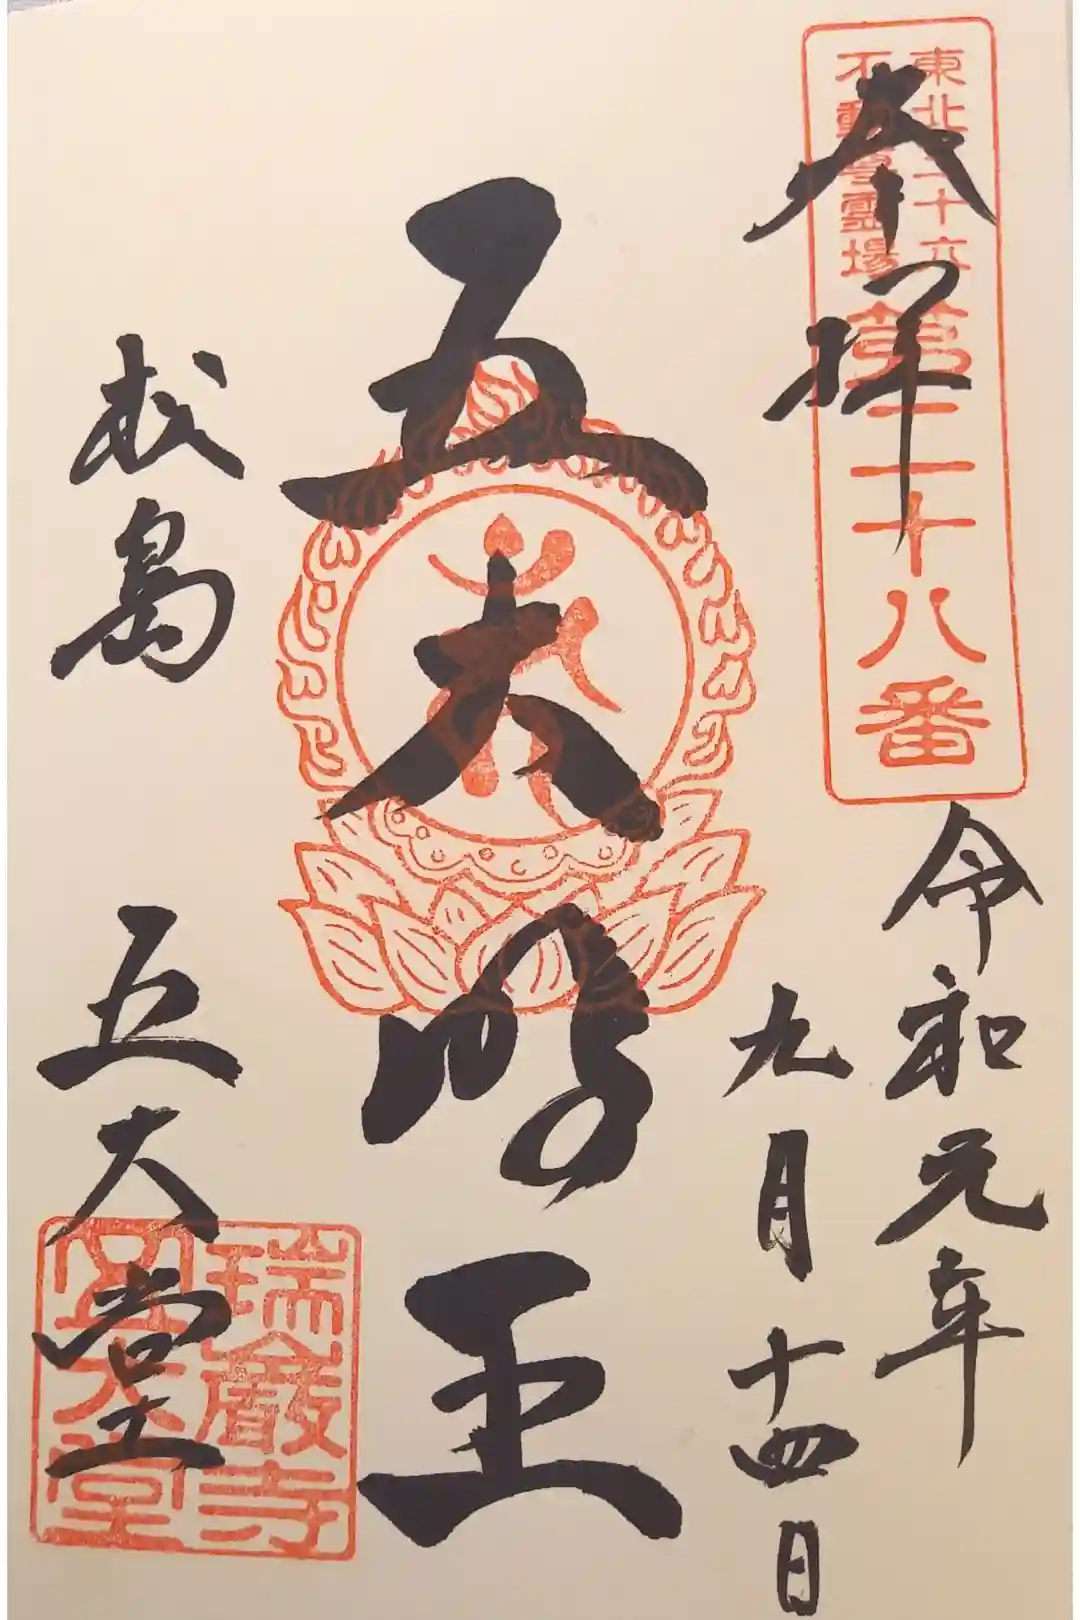 奉拝
東北三十六
不動尊霊場
第二十八番
令和元年
九月十四日
五大明王
松島
五大堂
瑞巌寺
五大堂